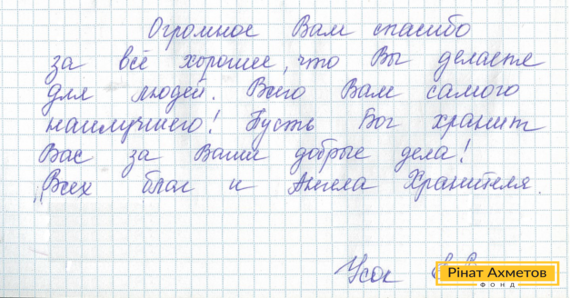 Огромное Вам спасибо
за всё хорошее, что Вы делаете
для людей. Всего Вам самого
наилучшего! Пусть Бог хранит
Вас за Ваши добрые дела!
Всех благ и Ангела Хранителя.
Усок
Рінат Ахметов
ФОНД